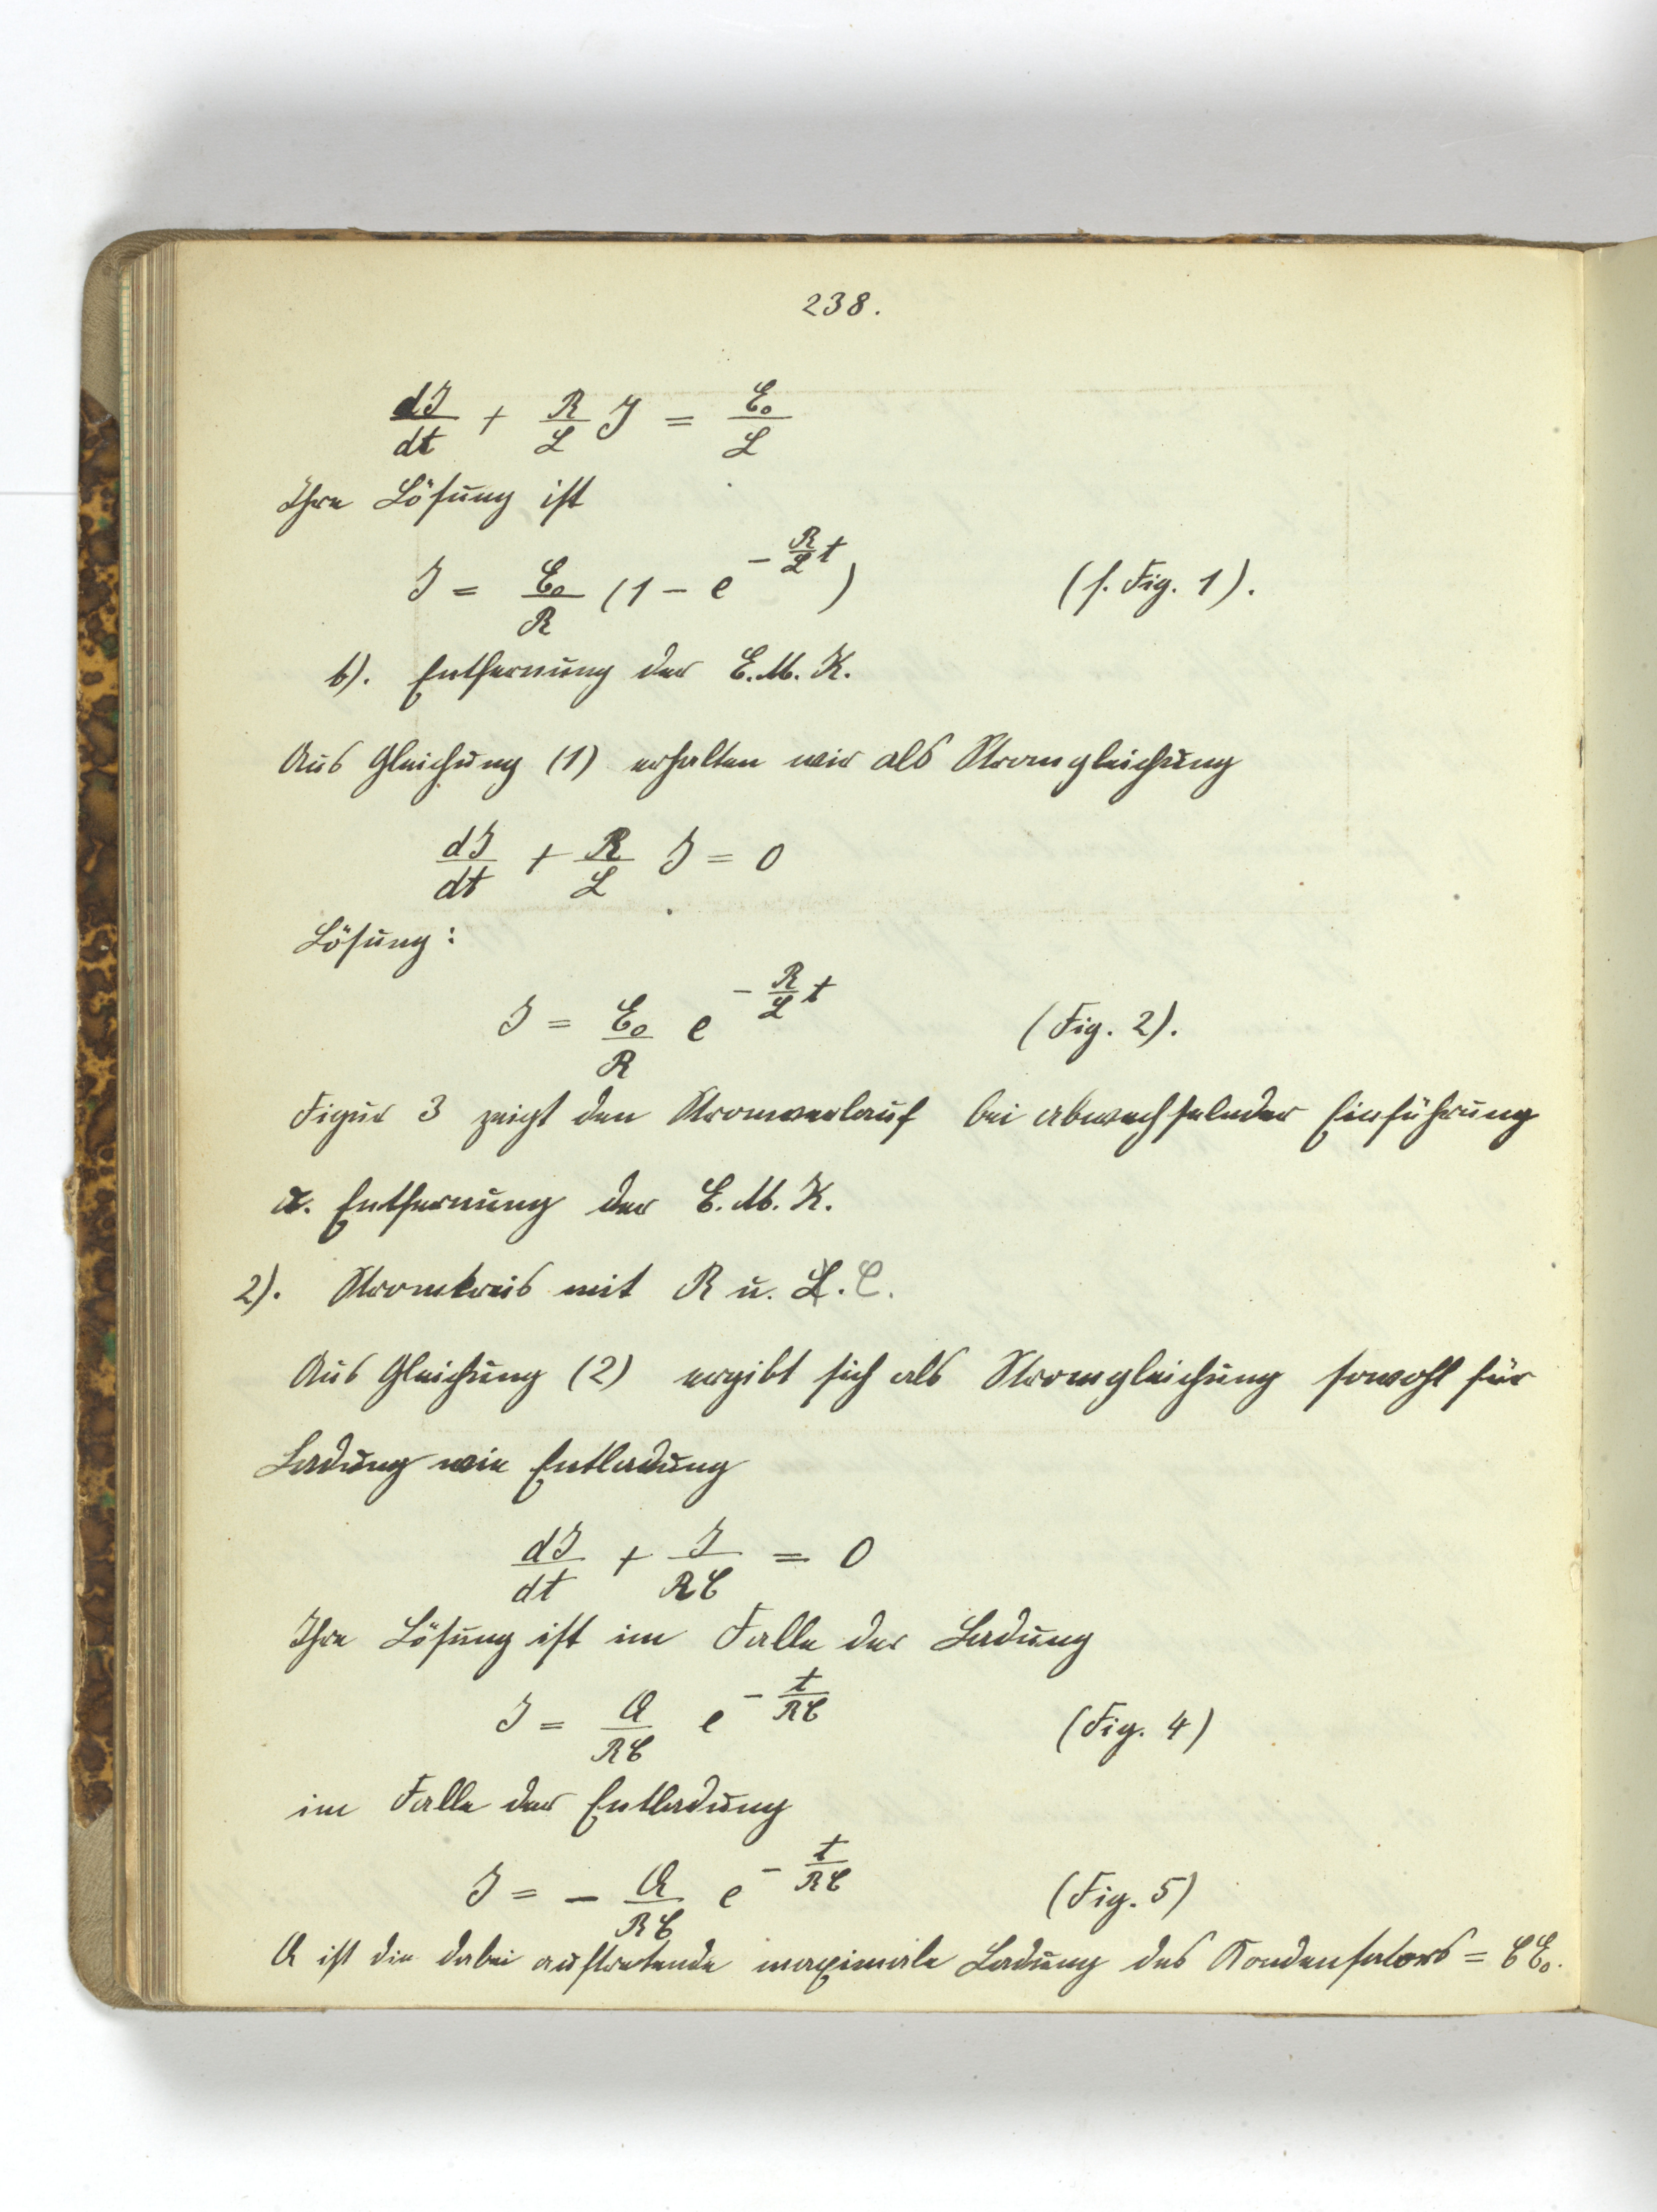 238.
dJ/dt + R/L J = E₀/L
Ihre Lösung ist
J = E₀/R (1 - e^(-R/L t)) (s. Fig. 1).
b). Entfernung der E.M.K.
Aus Gleichung (1) erhalten wir als Stromgleichung
dJ/dt + R/L J = 0
Lösung:
J = E₀/R e^(-R/L t) (Fig. 2).
Figur 3 zeigt den Stromverlauf bei abwechselnder Einführung
u. Entfernung der E.M.K.
2). Stromkreis mit R u. L. C.
Aus Gleichung (2) ergibt sich als Stromgleichung sowohl für
Ladung wie Entladung
dJ/dt + J/RC = 0
Ihre Lösung ist im Falle der Ladung
J = Q/RC e^(-t/RC) (Fig. 4)
im Falle der Entladung
J = - Q/RC e^(-t/RC) (Fig. 5)
Q ist die dabei auftretende maximale Ladung des Kondensators = CE₀.